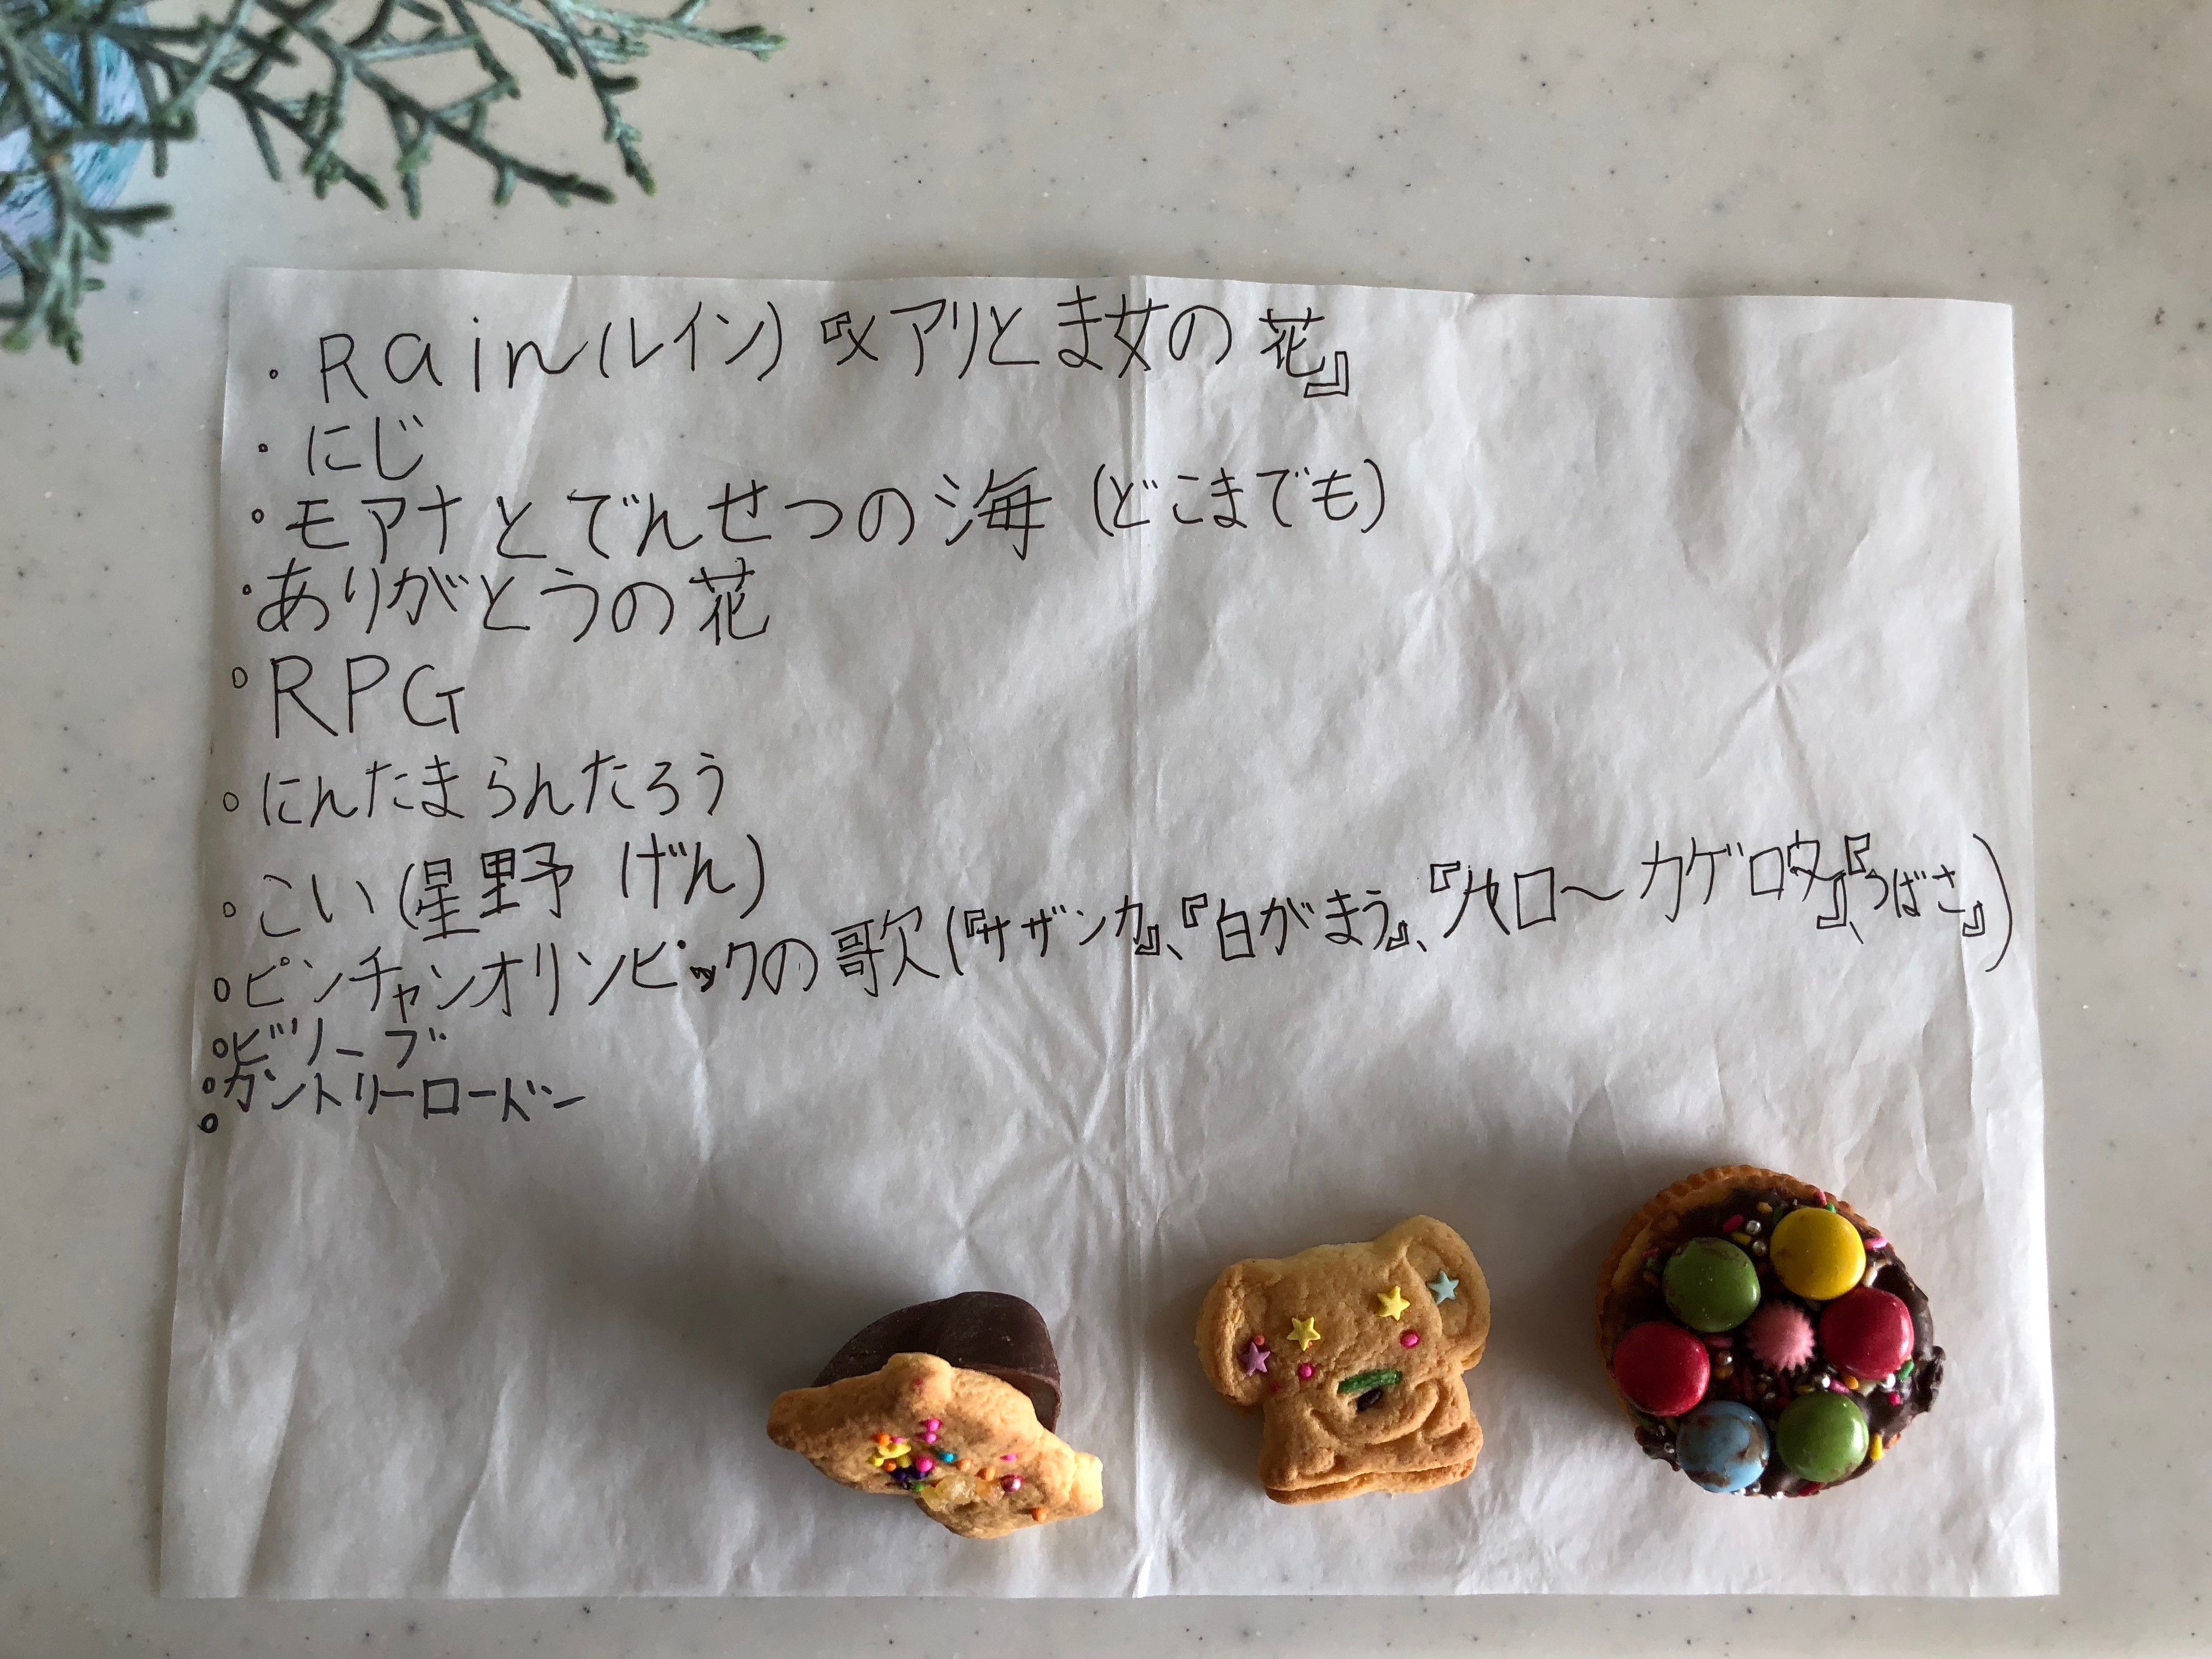 ・Rain(ルイン)『メアリとま女の花』
・にじ
・モアナとでんせつの海(どこまでも)
・ありがとうの花
・RPG
・にんたまらんたろう
・こい(星野 げん)
・ピンチャンオリンピックの歌(『サザンカ』、『白がまう』、『ハロ〜カゲロウ』、『つばさ』)
・ビリーブ
・カントリーロードー
・